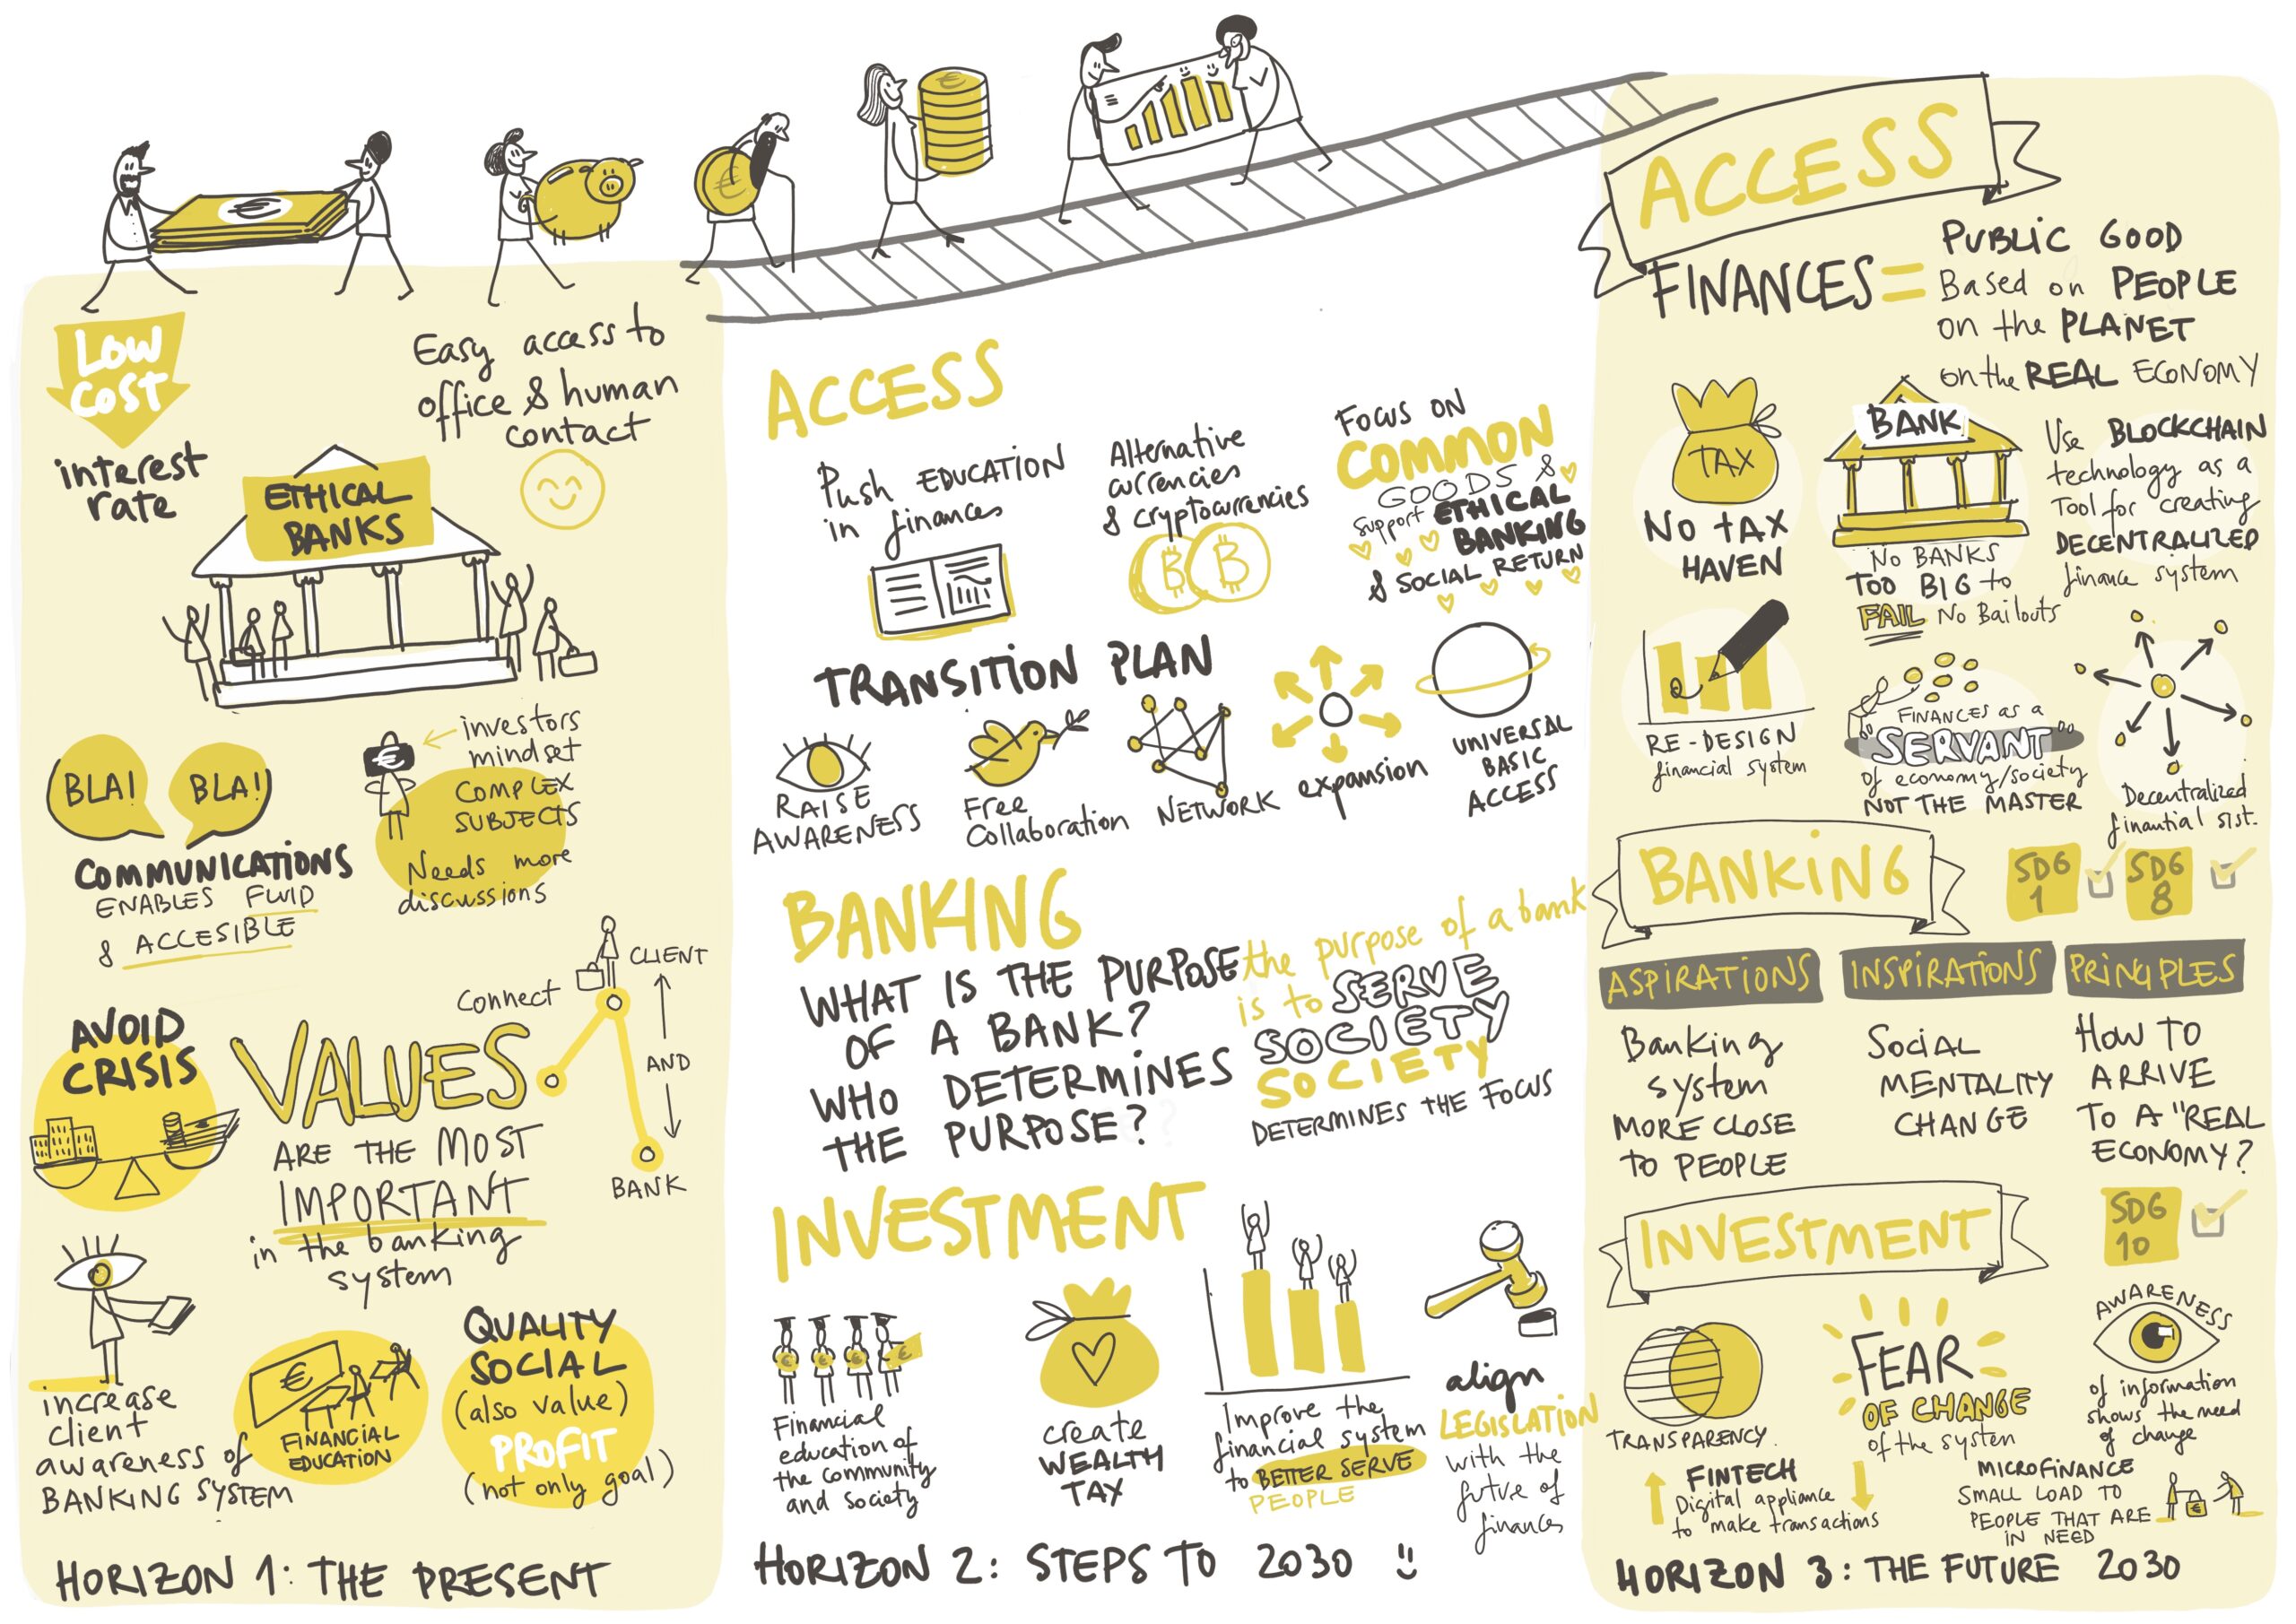 LOW
COST
interest
rate
Easy access to
office & human
contact
ETHICAL
BANKS
BLA!
BLA!
COMMUNICATIONS
ENABLES FLUID
& ACCESIBLE
investors
mindset
COMPLEX
SUBJECTS
Needs more
discussions
AVOID
CRISIS
Connect
CLIENT
AND
BANK
VALUES
ARE THE MOST
IMPORTANT
in the banking
system
increase
client
awareness of
BANKING SYSTEM
€
FINANCIAL
EDUCATION
QUALITY
SOCIAL
(also value)
PROFIT
(not only goal)
HORIZON 1: THE PRESENT
ACCESS
Push EDUCATION
in finances
Alternative
currencies
& cryptocurrencies
FOCUS ON
COMMON
GOODS &
Support ETHICAL
BANKING
& SOCIAL RETURN
TRANSITION PLAN
RAISE
AWARENESS
Free
Collaboration
NETWORK
expansion
UNIVERSAL
BASIC
ACCESS
BANKING
WHAT IS THE PURPOSE
OF A BANK?
WHO DETERMINES
THE PURPOSE?
the purpose of a bank
is to SERVE
SOCIETY
SOCIETY
DETERMINES THE FOCUS
INVESTMENT
Financial
education of
the community
and society
create
WEALTH
TAX
Improve the
financial system
to BETTER SERVE
PEOPLE
align
LEGISLATION
with the
future of
finances
HORIZON 2: STEPS TO 2030
ACCESS
FINANCES = PUBLIC GOOD
Based on PEOPLE
on the PLANET
on the REAL ECONOMY
TAX
NO TAX
HAVEN
BANK
NO BANKS
TOO BIG to
FAIL No Bailouts
Use BLOCKCHAIN
technology as a
Tool for creating
DECENTRALIZED
finance system
RE-DESIGN
financial system
FINANCES AS A
"SERVANT"
of economy/society
NOT THE MASTER
Decentralized
finantial sist.
BANKING
SDG
1
SDG
8
ASPIRATIONS
INSPIRATIONS
PRINCIPLES
Banking
system
MORE CLOSE
TO PEOPLE
SOCIAL
MENTALITY
CHANGE
HOW TO
ARRIVE
TO A "REAL
ECONOMY?
INVESTMENT
SDG
10
TRANSPARENCY.
FEAR
OF CHANGE
of the system
AWARENESS
of information
shows the need
of change
FINTECH
Digital appliance
to make transactions
MICROFINANCE
SMALL LOAD TO
PEOPLE THAT ARE
IN NEED
HORIZON 3: THE FUTURE 2030